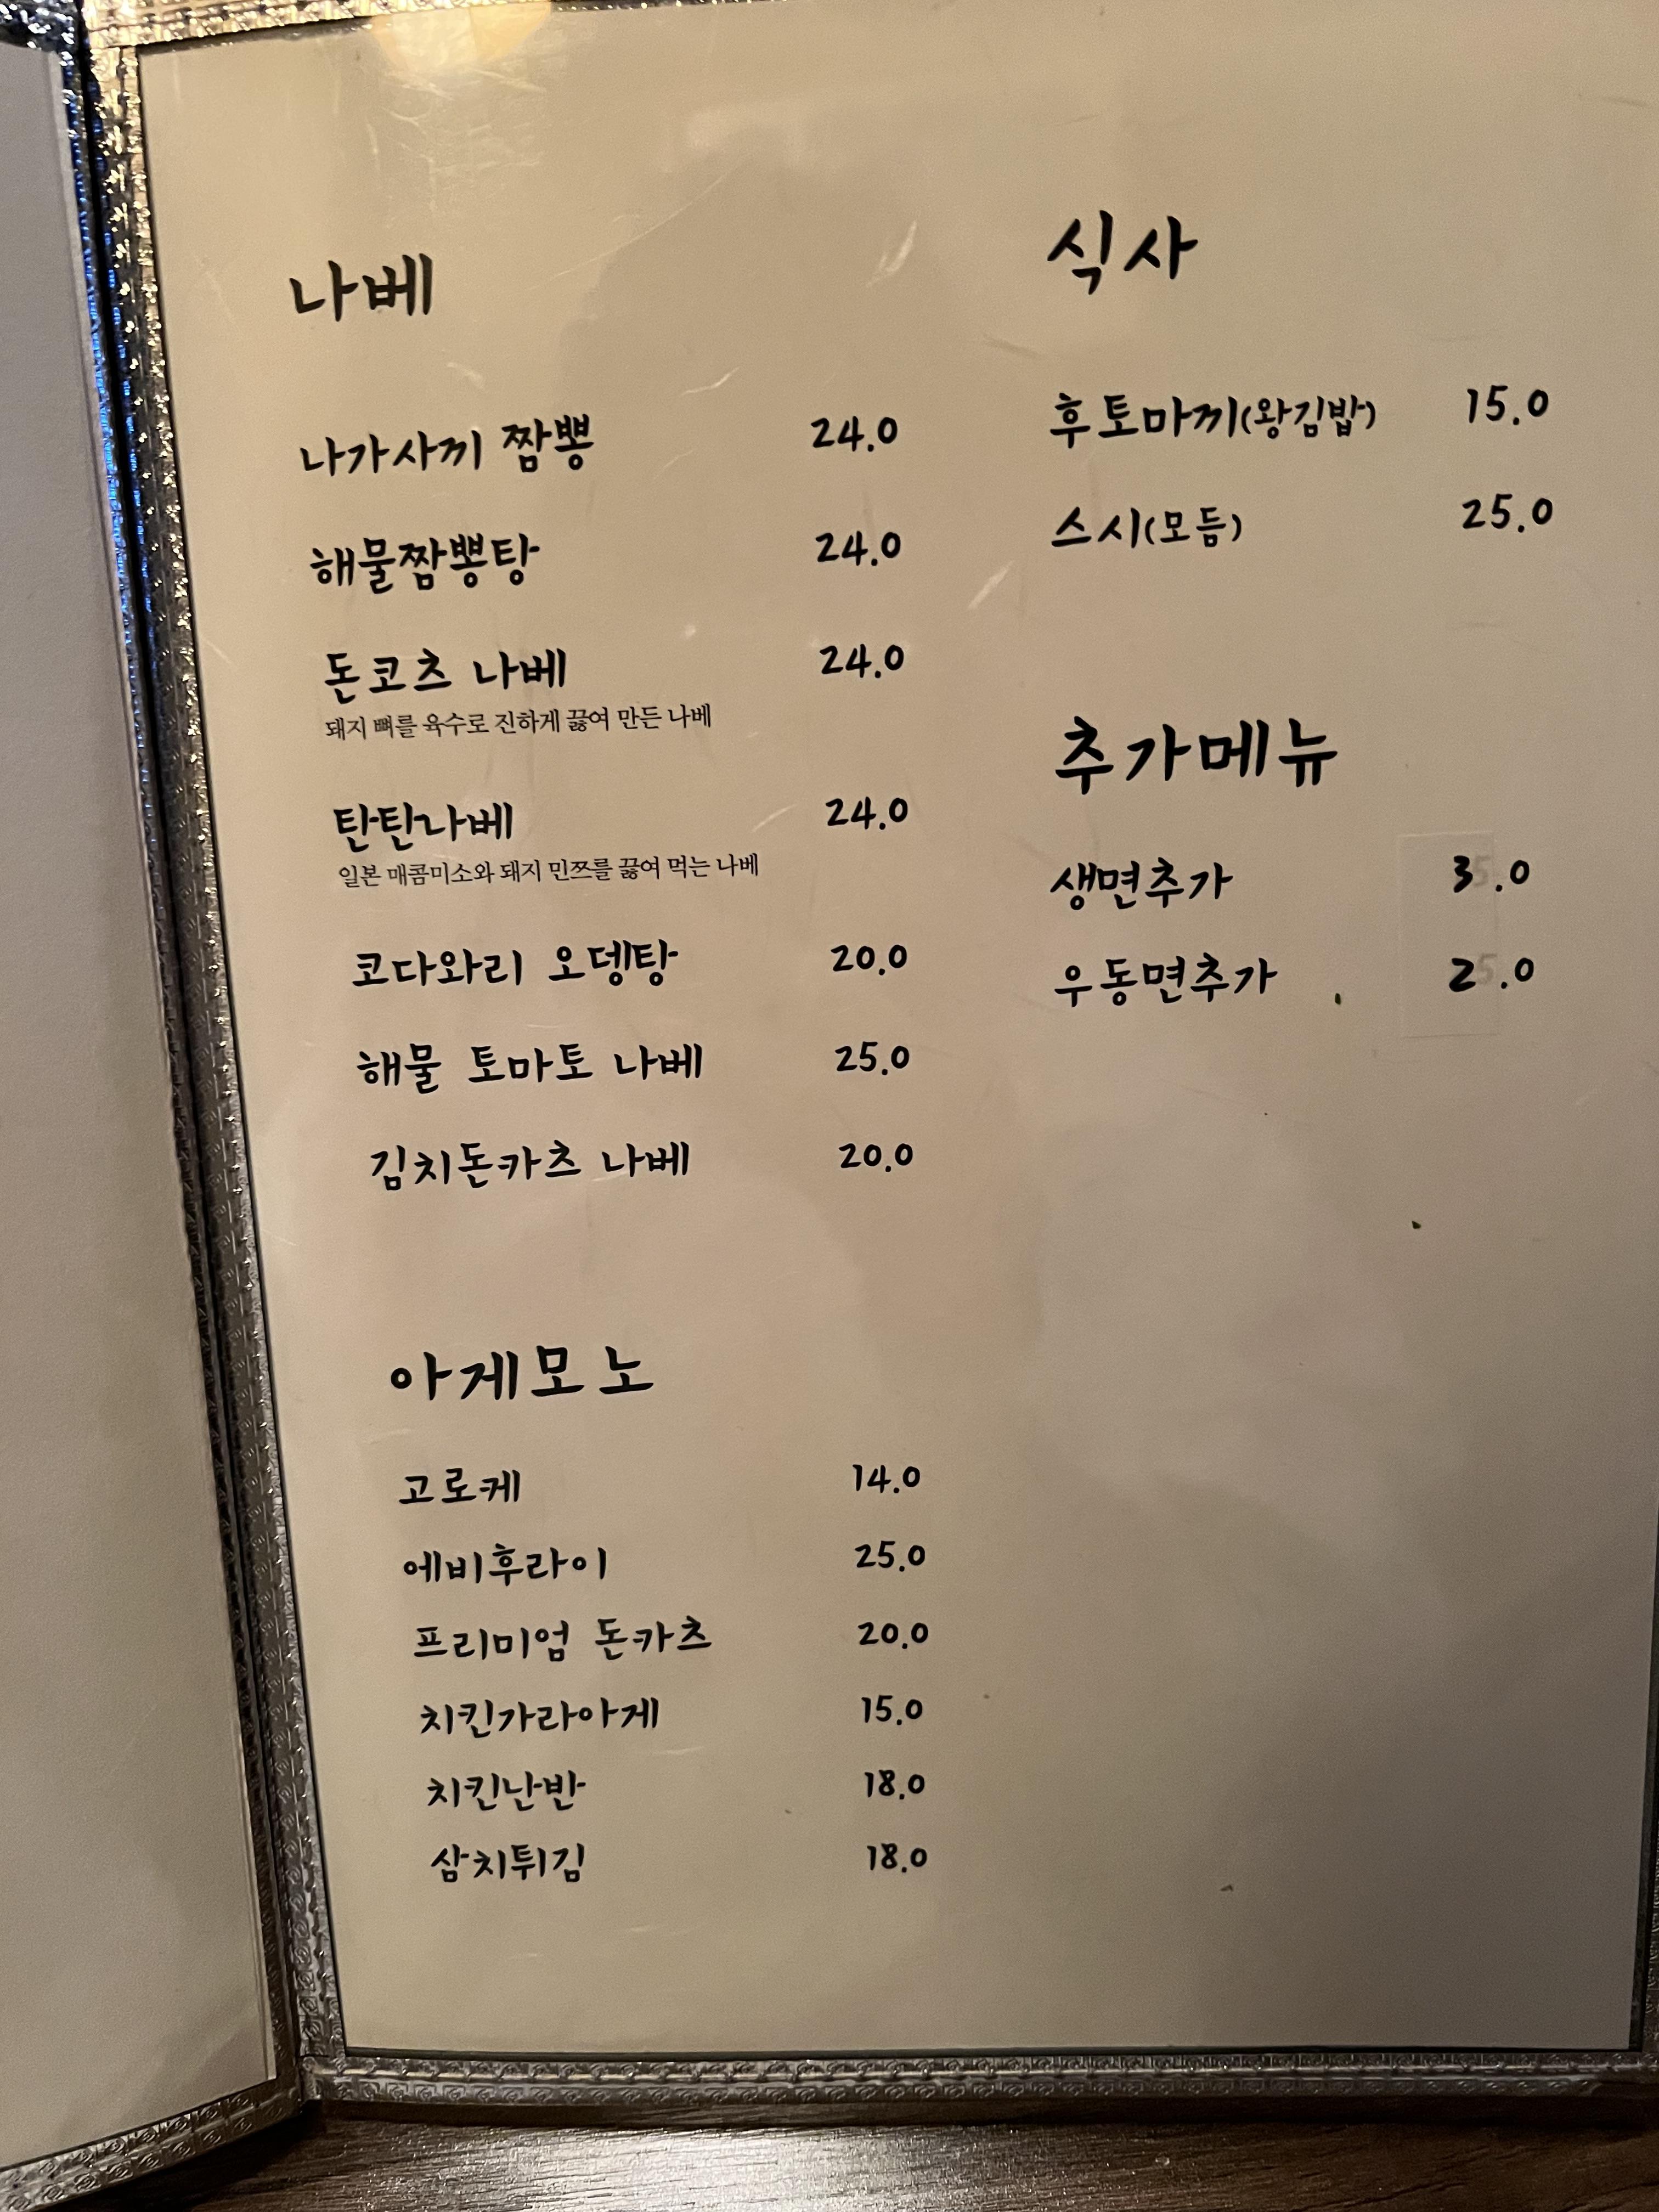 나베
나가사끼 짬뽕 24.0
해물짬뽕탕 24.0
돈코츠 나베 24.0
돼지 뼈를 육수로 진하게 끓여 만든 나베
탄탄나베 24.0
일본 매콤미소와 돼지 민쯔를 끓여 먹는 나베
코다와리 오뎅탕 20.0
해물 토마토 나베 25.0
김치돈카츠 나베 20.0
아게모노
고로케 14.0
에비후라이 25.0
프리미엄 돈카츠 20.0
치킨가라아게 15.0
치킨난반 18.0
삼치튀김 18.0
식사
후토마끼(왕김밥) 15.0
스시(모듬) 25.0
추가메뉴
생면추가 3.0
우동면추가 2.0